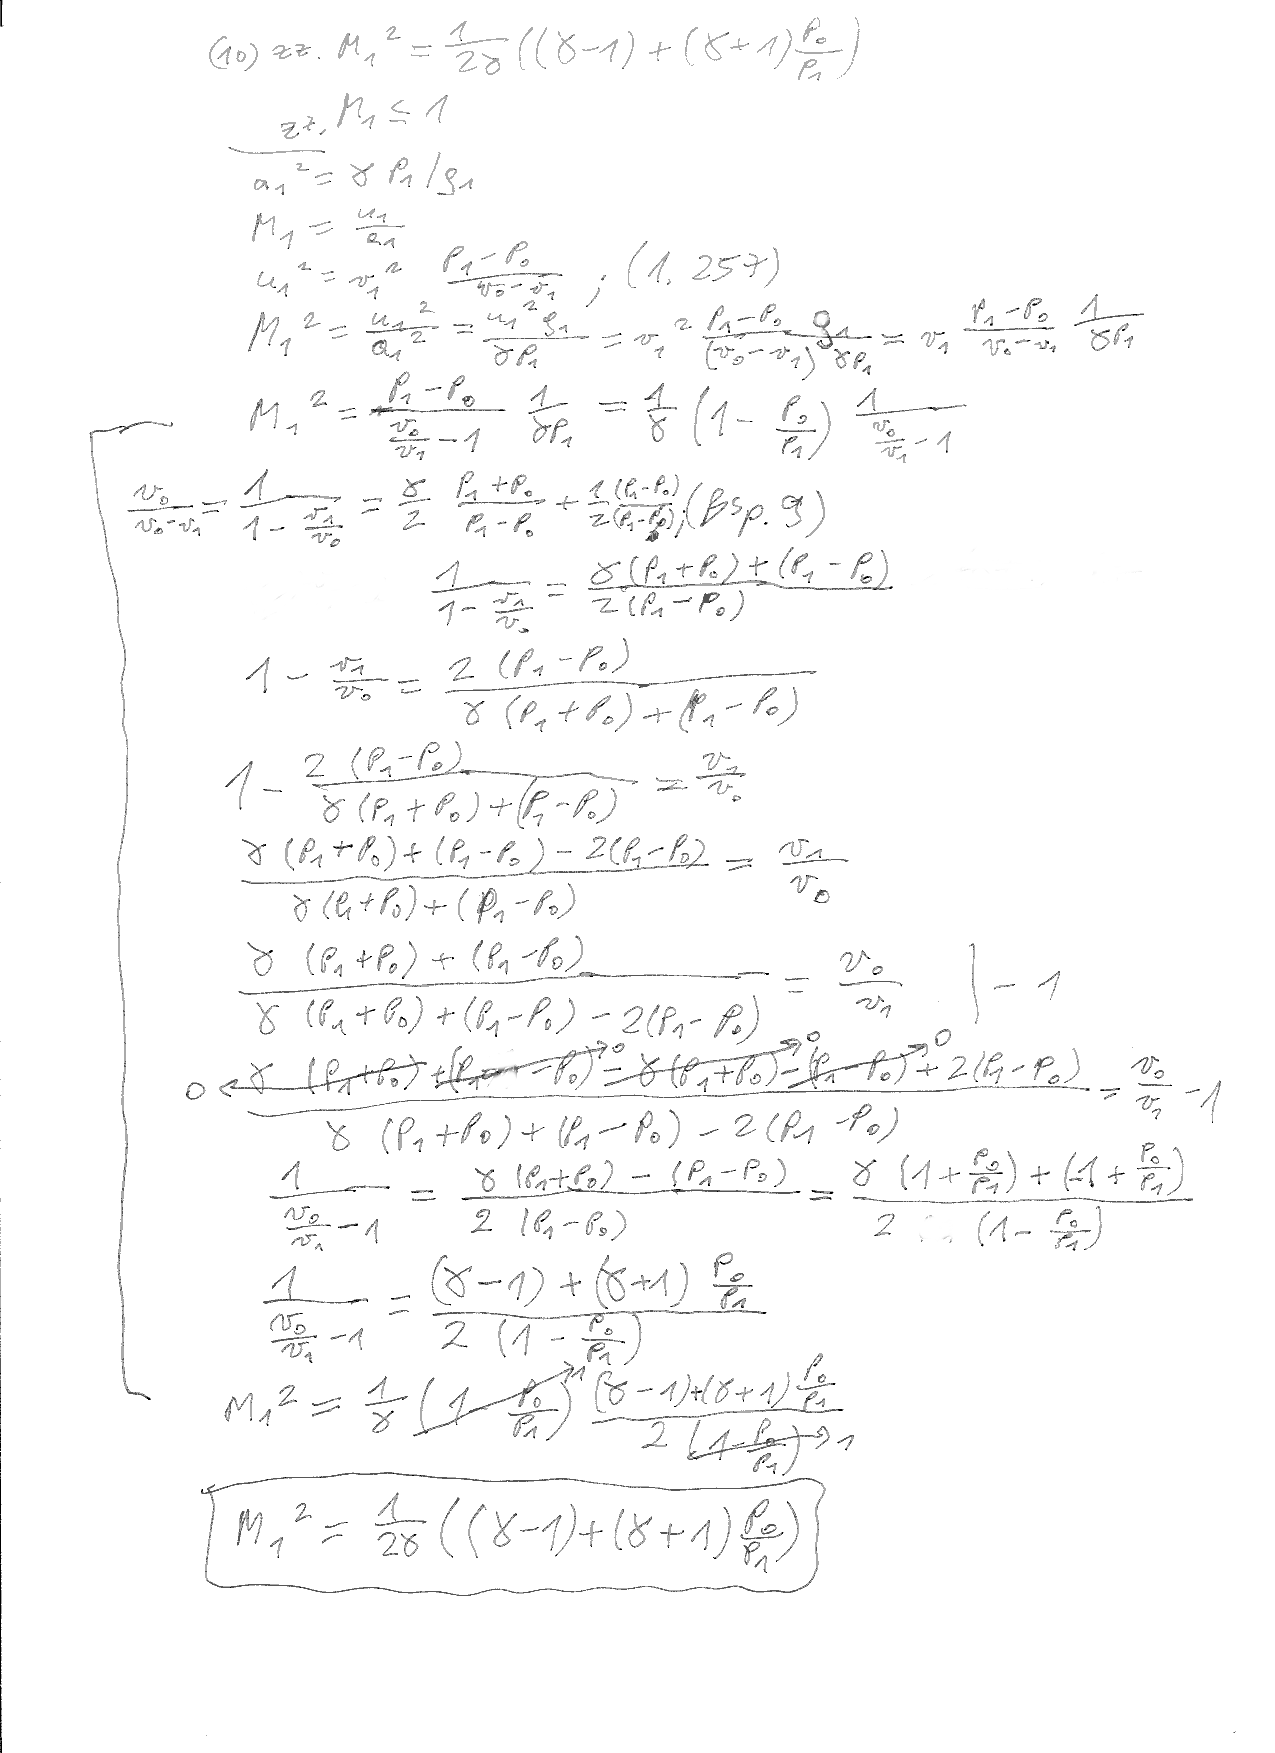 (10) zz. M₁² = 1/(2γ) ((γ-1) + (γ+1) P₀/P₁)
zz. M₁ ≤ 1
a₁² = γ P₁/ρ₁
M₁ = u₁/a₁
u₁² = v₁² (P₁-P₀)/(v₀-v₁) ; (1.257)
M₁² = u₁²/a₁² = u₁²ρ₁/(γP₁) = v₁² (P₁-P₀)/(v₀-v₁) ρ₁/(γP₁) = v₁ (P₁-P₀)/(v₀-v₁) 1/(γP₁)
M₁² = (P₁-P₀)/(v₀/v₁ - 1) 1/(γP₁) = 1/γ (1 - P₀/P₁) 1/(v₀/v₁ - 1)
v₀/(v₀-v₁) = 1/(1 - v₁/v₀) = γ/2 (P₁+P₀)/(P₁-P₀) + 1/2 (P₁-P₀)/(P₁-P₀); (Bsp. 9)
1/(1 - v₁/v₀) = (γ(P₁+P₀) + (P₁-P₀))/(2(P₁-P₀))
1 - v₁/v₀ = 2(P₁-P₀)/(γ(P₁+P₀) + (P₁-P₀))
1 - 2(P₁-P₀)/(γ(P₁+P₀) + (P₁-P₀)) = v₁/v₀
(γ(P₁+P₀) + (P₁-P₀) - 2(P₁-P₀))/(γ(P₁+P₀) + (P₁-P₀)) = v₁/v₀
(γ(P₁+P₀) + (P₁-P₀))/(γ(P₁+P₀) + (P₁-P₀) - 2(P₁-P₀)) = v₀/v₁ | - 1
0 ← (γ(P₁+P₀) + (P₁-P₀) → 0 - γ(P₁+P₀) → 0 - (P₁-P₀) → 0 + 2(P₁-P₀))/(γ(P₁+P₀) + (P₁-P₀) - 2(P₁-P₀)) = v₀/v₁ - 1
1/(v₀/v₁ - 1) = (γ(P₁+P₀) - (P₁-P₀))/(2(P₁-P₀)) = (γ(1 + P₀/P₁) + (-1 + P₀/P₁))/(2(1 - P₀/P₁))
1/(v₀/v₁ - 1) = ((γ-1) + (γ+1) P₀/P₁)/(2(1 - P₀/P₁))
M₁² = 1/γ (1 - P₀/P₁) → 1 ((γ-1)+(γ+1) P₀/P₁)/(2(1 - P₀/P₁) → 1)
M₁² = 1/(2γ) ((γ-1) + (γ+1) P₀/P₁)